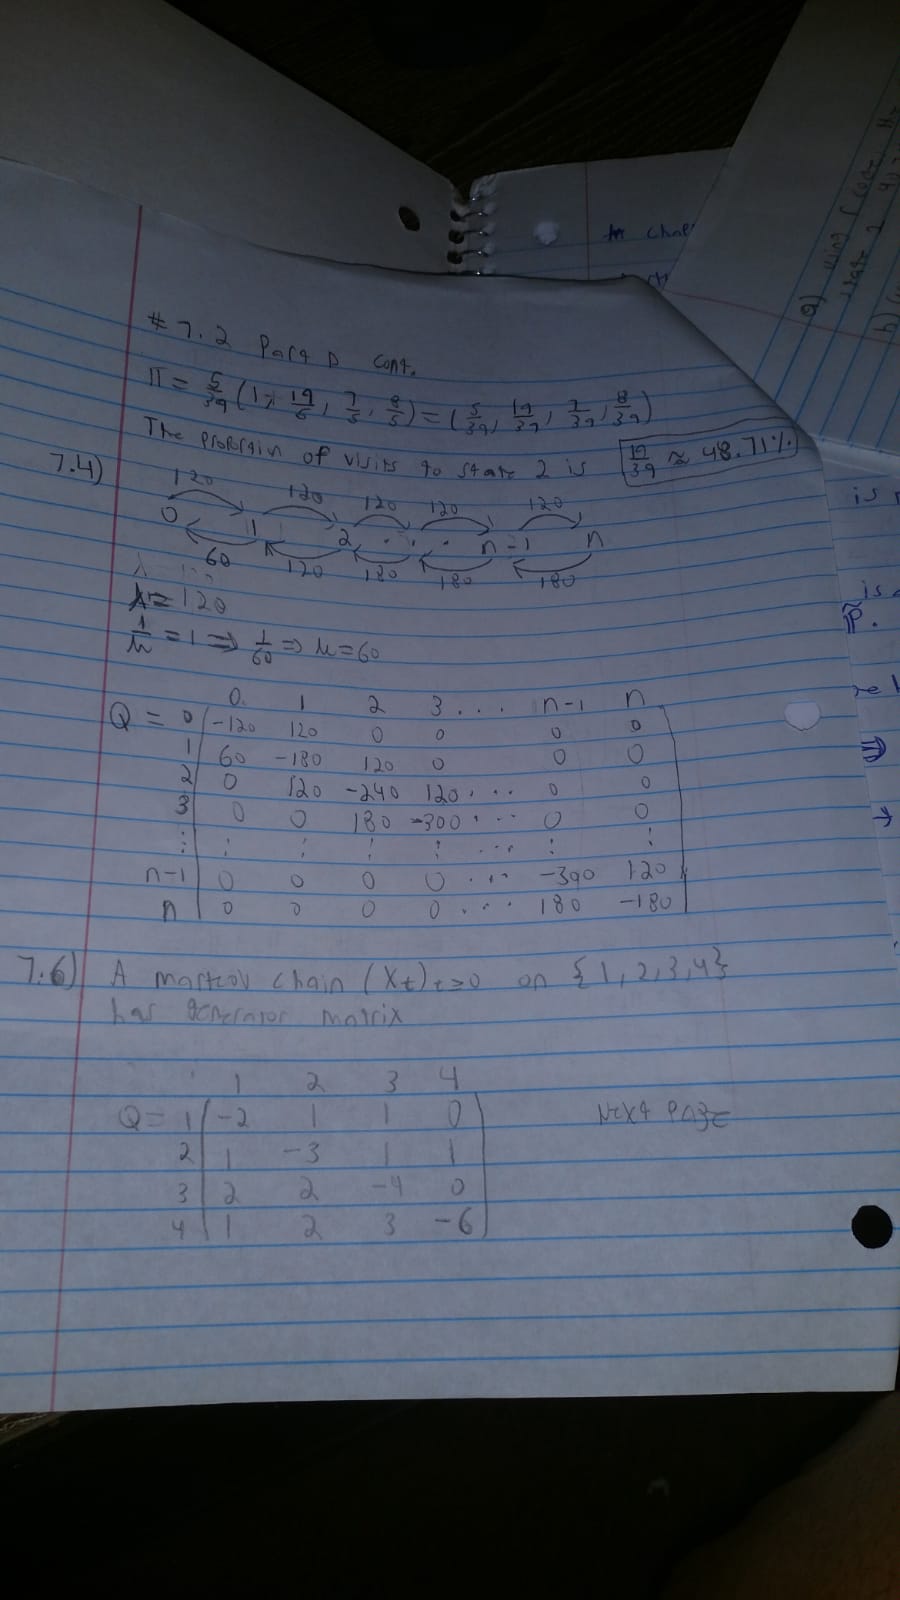 # 7.2 Part D cont.
π = 5/39 (1, 19/5, 7/5, 8/5) = (5/39, 19/39, 7/39, 8/39)
The proportion of visits to state 2 is 19/39 ≈ 48.71%
7.4)
120 120 120 120 120
0 1 2 . . . n-1 n
60 120 180 180 180
λ = 120
1/μ = 1 ⇒ 1/60 ⇒ μ = 60
0 1 2 3 . . . n-1 n
Q = 0 -120 120 0 0 0 0
1 60 -180 120 0 0 0
2 0 120 -240 120 . . . 0 0
3 0 0 180 -300 . . . 0 0
⋮ ⋮ ⋮ ⋮ ⋮ . . . ⋮ ⋮
n-1 0 0 0 0 . . . -300 120
n 0 0 0 0 . . . 180 -180
7.6) A markov chain (Xt) t≥0 on {1,2,3,4}
has generator matrix
1 2 3 4
Q = 1 -2 1 1 0 Next Page
2 1 -3 1 1
3 2 2 -4 0
4 1 2 3 -6